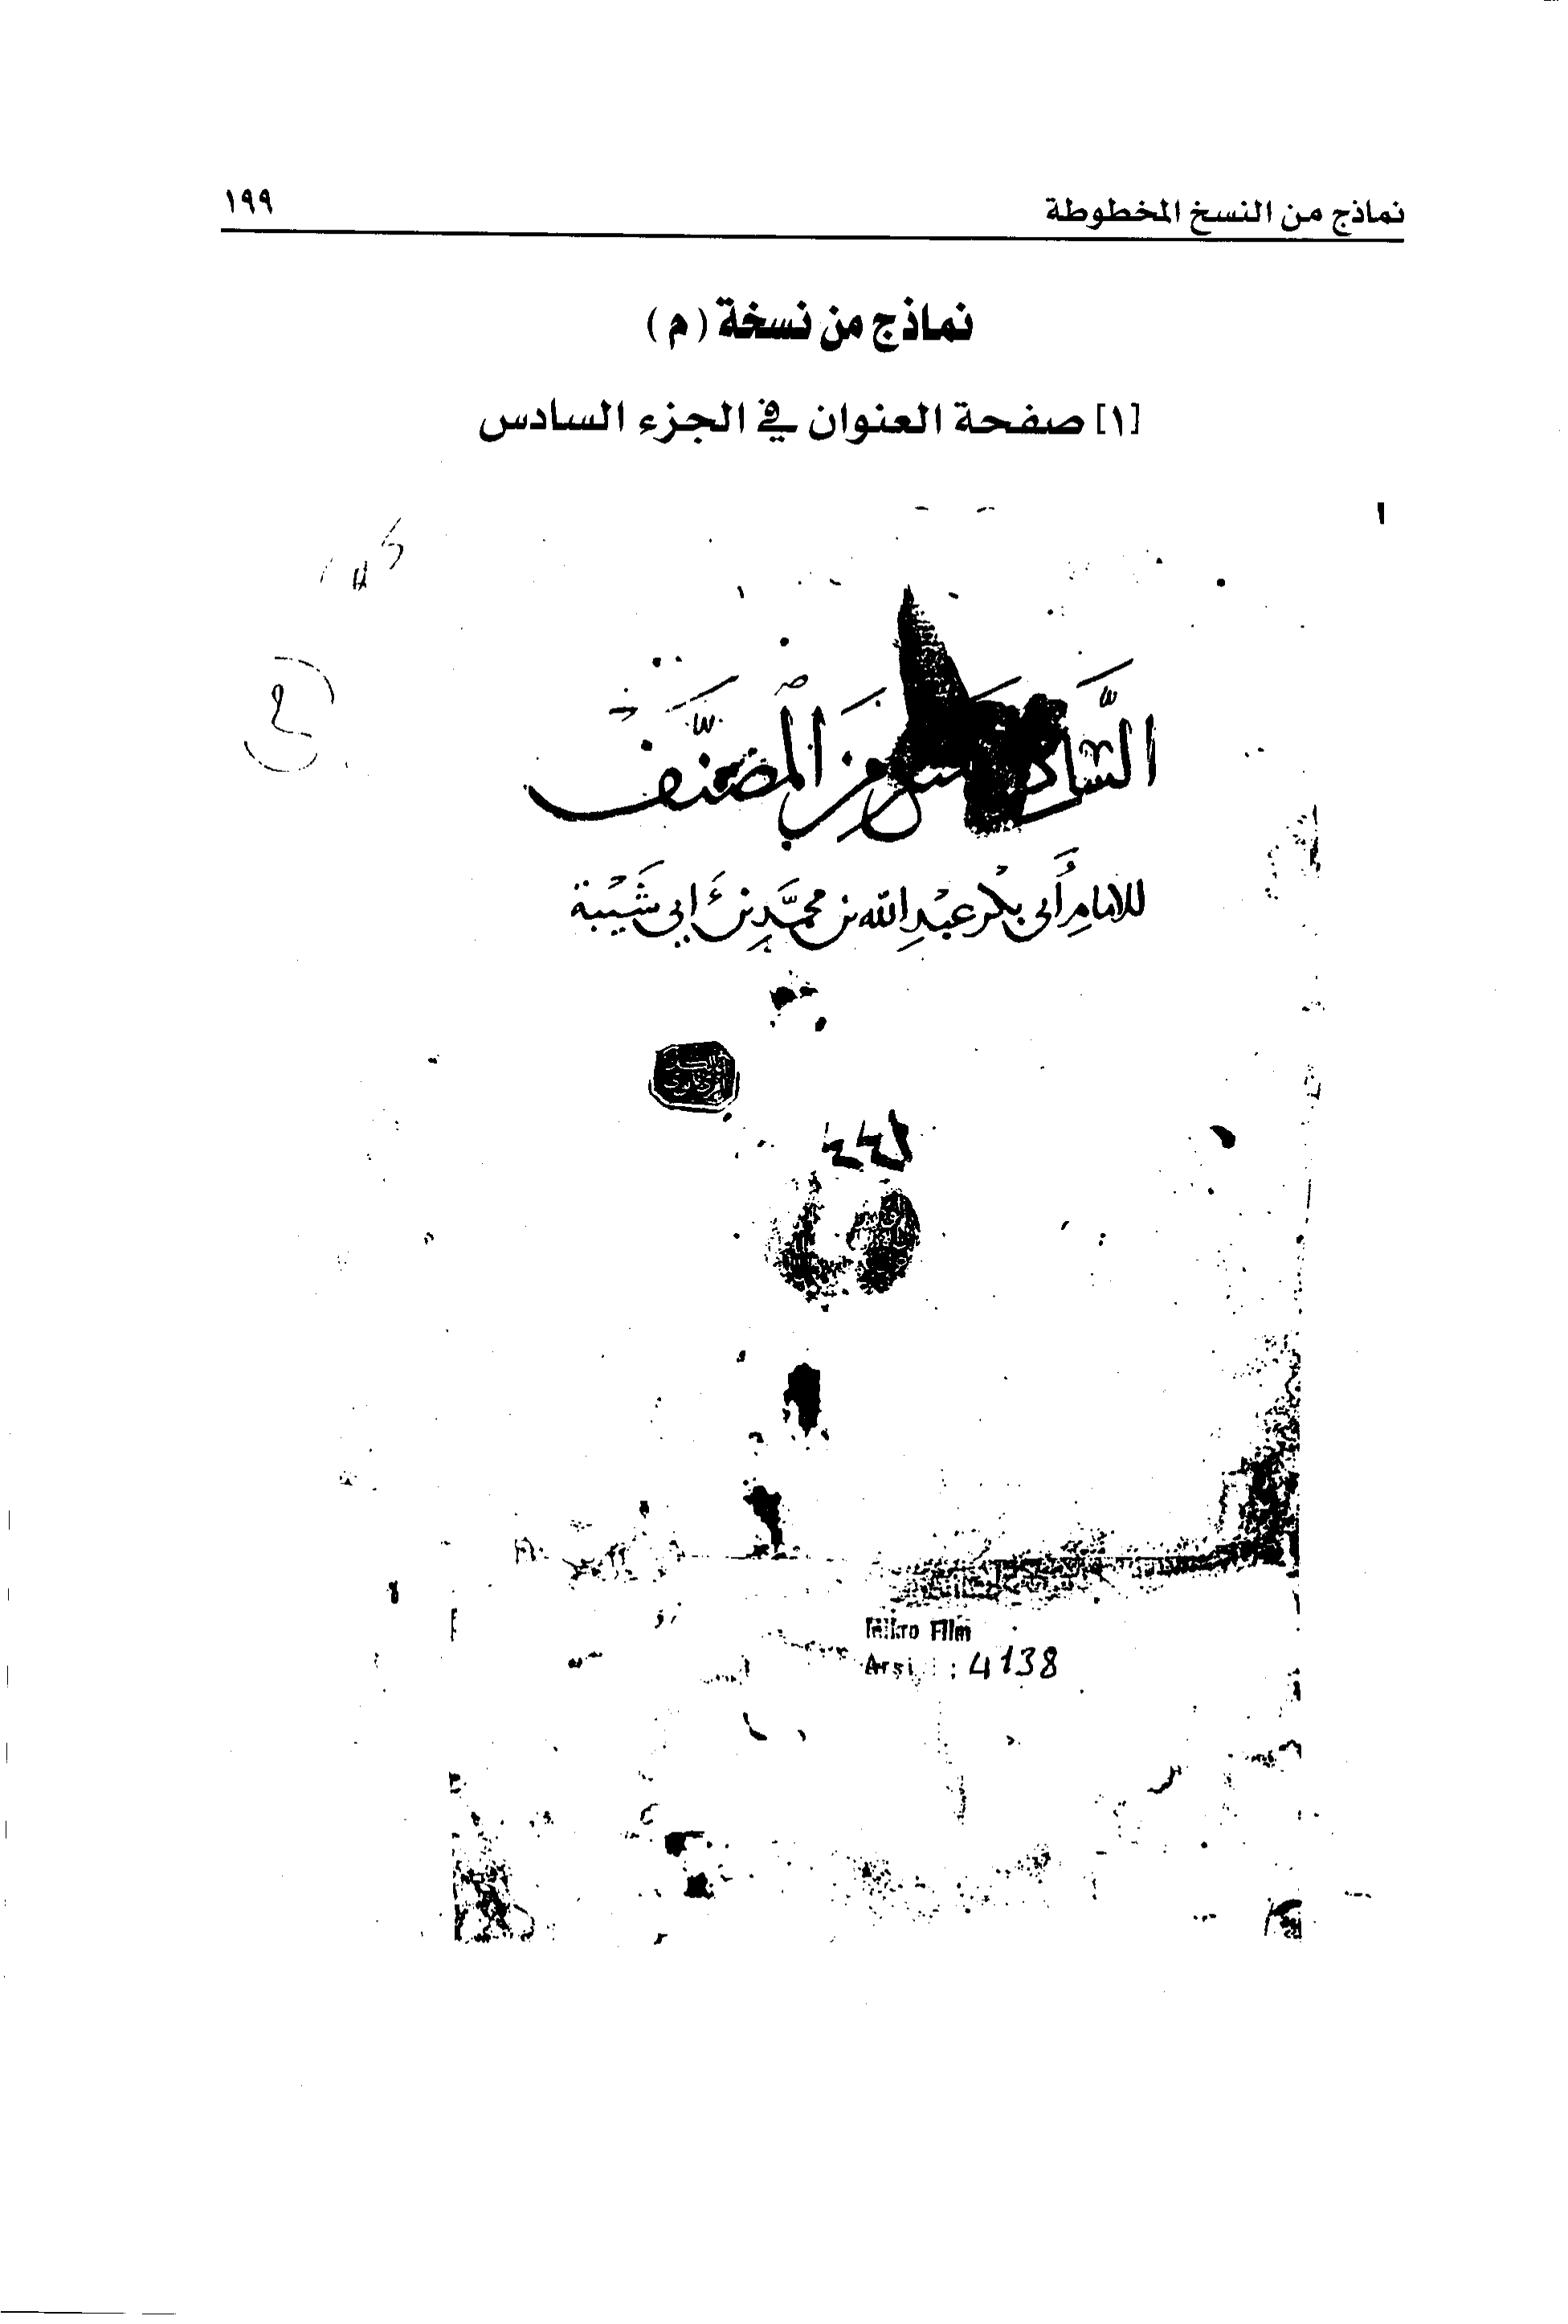 نماذج من النسخ المخطوطة ١٩٩
نماذج من نسخة (م)
[١] صفحة العنوان في الجزء السادس
١
السادس من المصنف
للإمام أبي بكر عبد الله بن محمد بن أبي شيبة
Mikro Film
4138